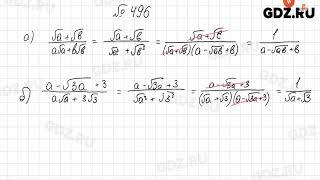 GDZ.RU
№ 496
а) (√a+√b)/(a√a+b√b) = (√a+√b)/(√a³+√b³) = (√a+√b)/((√a+√b)(a-√ab+b)) = 1/(a-√ab+b)
б) (a-√3a+3)/(a√a+3√3) = (a-√3a+3)/(√a³+√3³) = (a-√3a+3)/((√a+√3)(a-√3a+3)) = 1/(√a+√3)
GDZ.RU